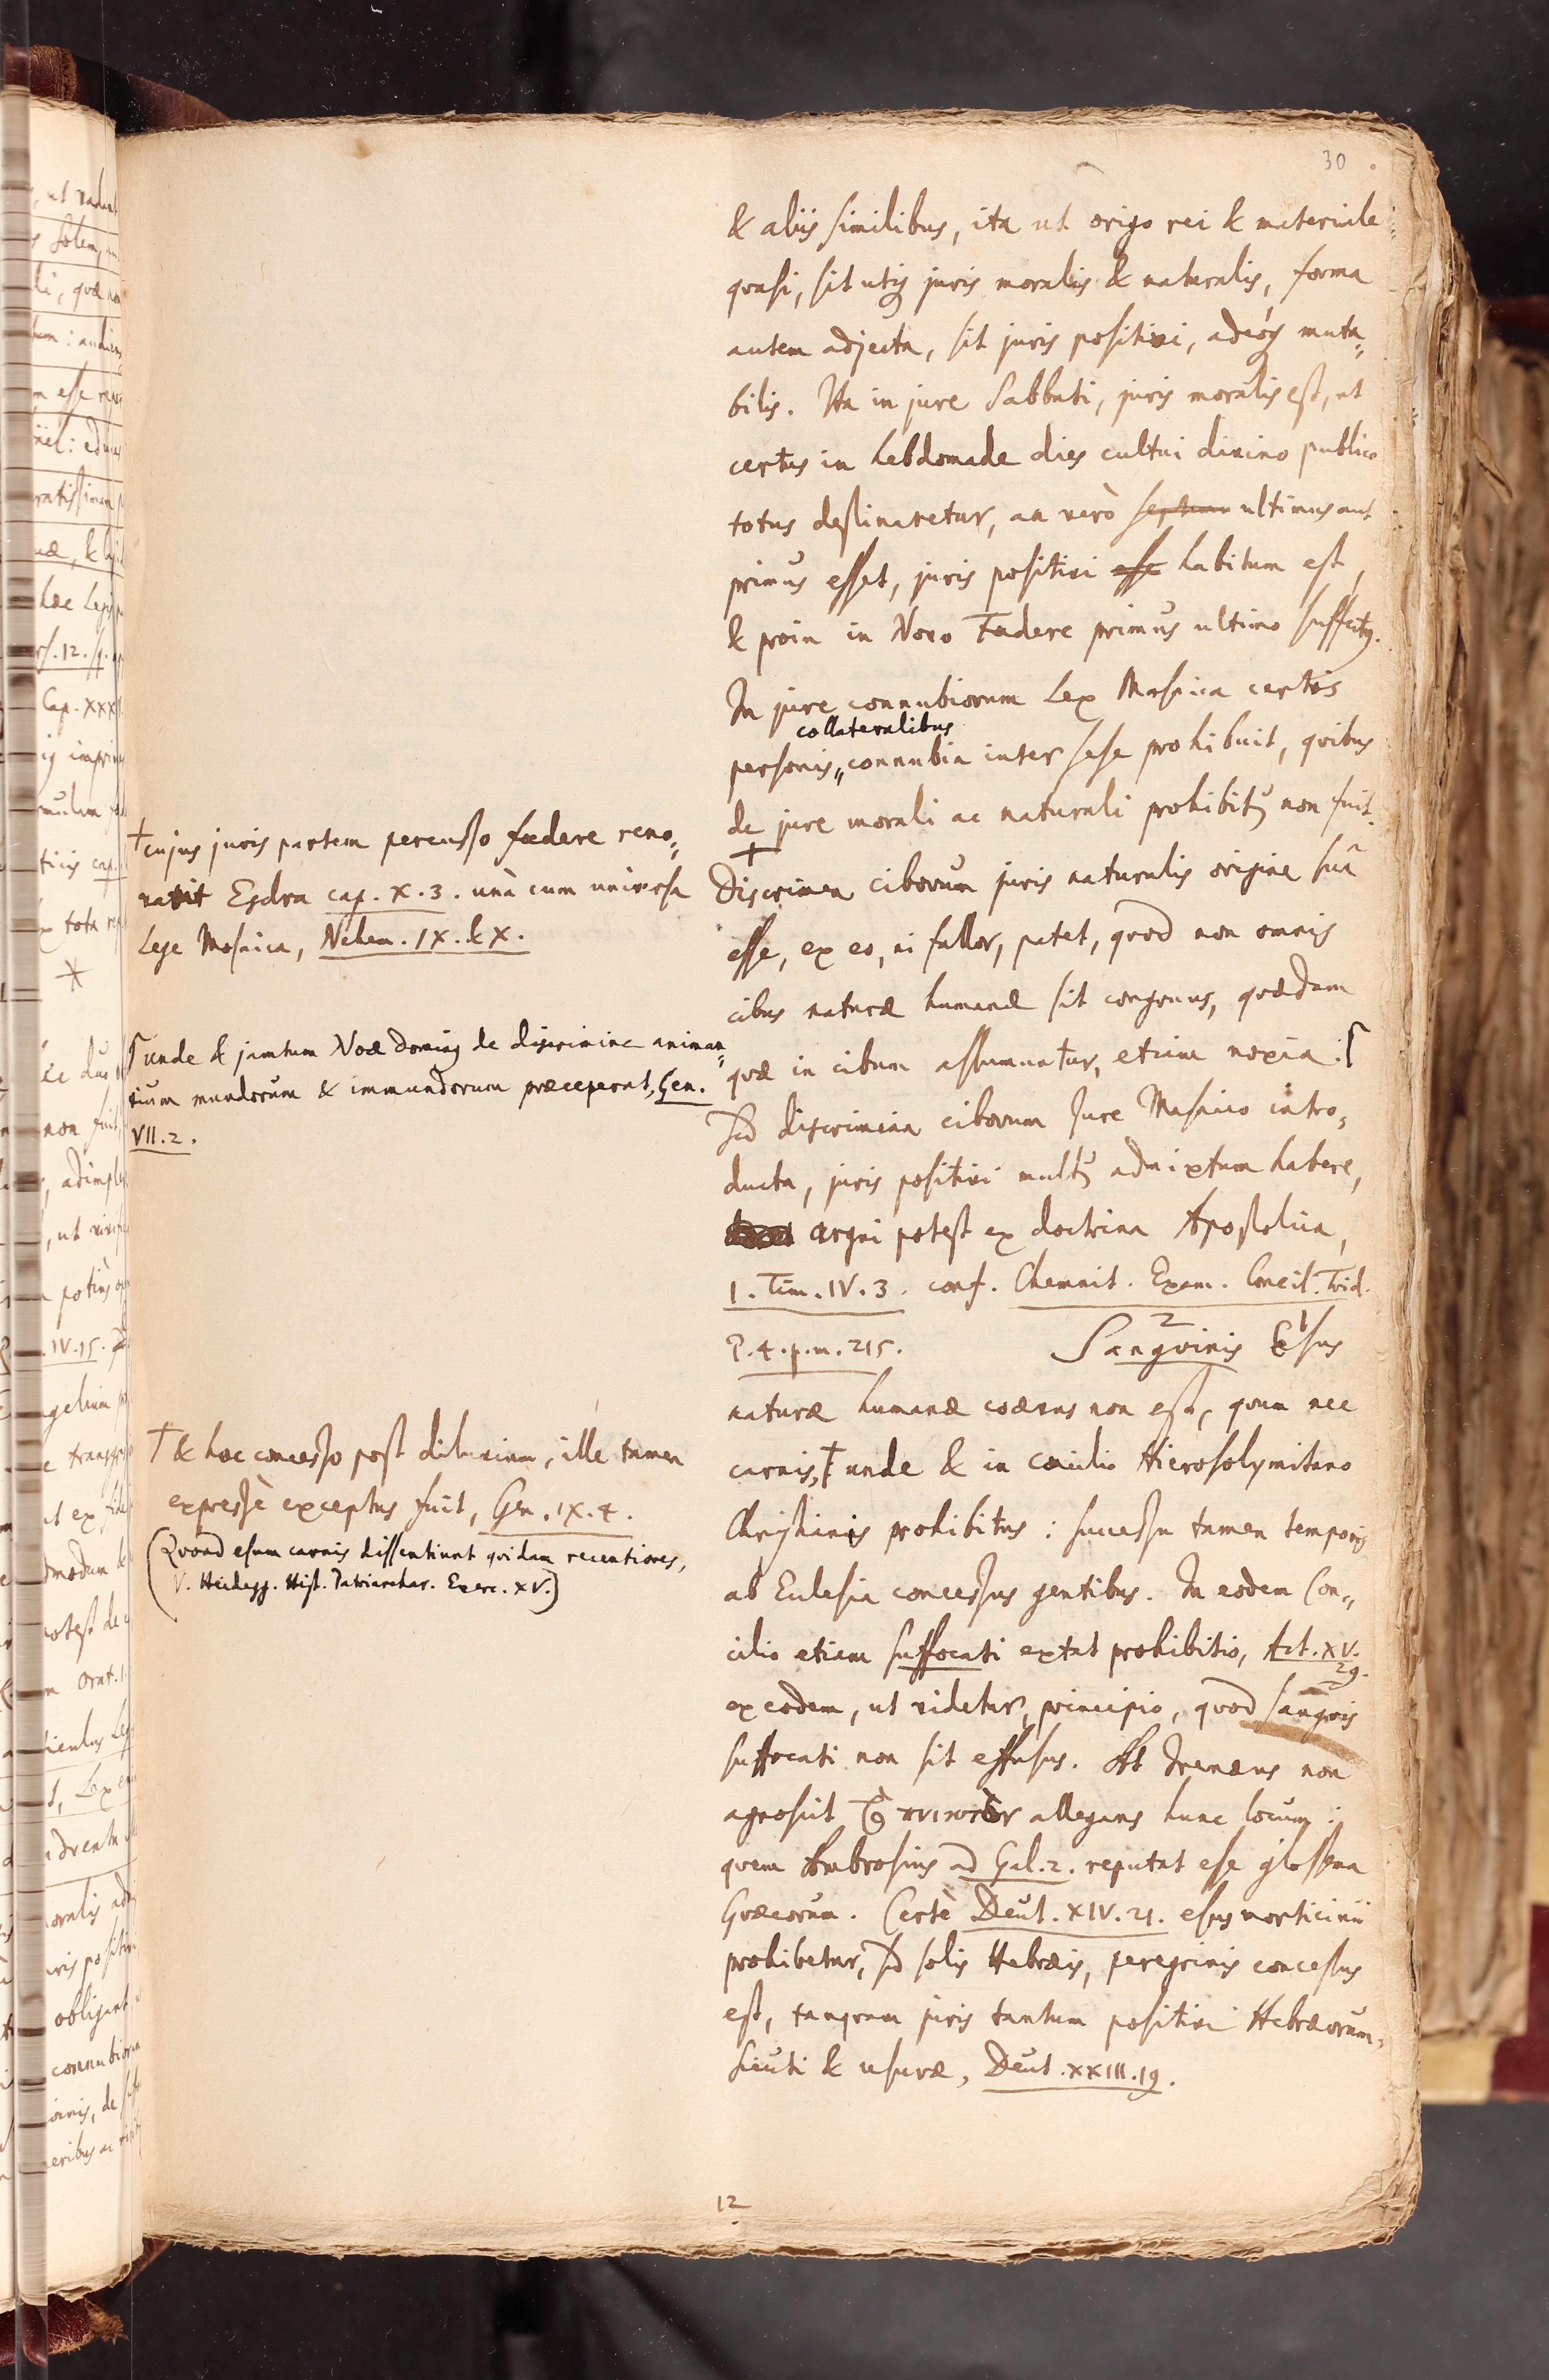 30
& aliis similibus, ita ut origo rei & materiale
quasi, sit utiq juris moralis & naturalis, forma
autem adjecta, sit juris positivi, adeóq muta„
bilis. Ita in jure Sabbati, juris moralis est, ut
certus in hebdomade dies cultui divino publico
totus destinaretur, an verò septimus ultimus aut
primus esset, juris positivi esse habitum est,
& proin in Novo Foedere primus ultimo suffectq.
In jure connubiorum Lex Mosaica certis
collateralibus
personis„ connubia inter sese prohibuit, quibus
de jure morali ac naturali prohibitũ non fuit.
†
Discrimen ciborum juris naturalis origine suâ
esse, ex eo, ni fallor, patet, quod non omnis
cibus naturæ humanæ sit congruus, quædam
quæ in cibum assumuntur, etiam noxia. ſ
Sed discrimina ciborum Jure Mosaico intro„
ducta, juris positivi multũ admixtum habere,
argui potest ex doctrina Apostolica,
1. Tim. IV. 3. conf. Chemnit. Exam. Concil. Trid.
P. 4. p. m. 215.
2 1
Sangvinis Esus
naturæ humanæ coævus non est, qvum nec
carnis,† unde & in concilio Hierosolymitano
Christianis prohibitus: successu tamen temporis
ab Eclesia concessus gentibus. In eodem Con„
cilio etiam suffocati extat prohibitio, Act. XV.
29.
ex eodem, ut videtur, principio, quod sangvis
suffocati non sit effusus. At Irenæus non
agnoscit τὸ πνικτὸν allegans hunc locum:
quem Ambrosius ad Gal. 2. reputat esse glossema
Græcorum. Certè Deut. XIV. 21. esus morticinii
prohibetur, sed solis Hebræis, peregrinis concessus
est, tanqvam juris tantum positivi Hebræorum,
sicuti & usuræ, Deut. XXIII. 19.
12
† cujus juris partem percusso foedere reno„
vavit Esdra cap. X. 3. unà cum universa
Lege Mosaica, Nehem. IX. & X.
ſ unde & jamtum Noæ Dominq de discrimine animan„
tium mundorum & immundorum præceperat, Gen.
VII. 2.
† & hoc concesso post diluvium, ille tamen
expressè exceptus fuit, Gen. IX. 4.
(Qvoad esum carnis dissentiunt quidam recentiores,
V. Heidegg. Hist. Patriarchar. Exerc. XV.)